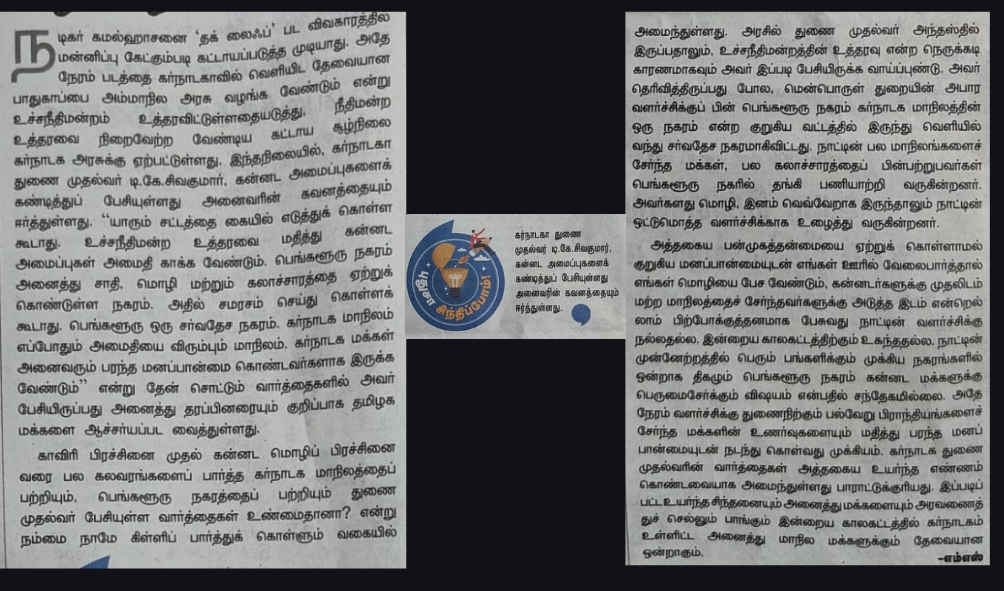 நடிகர் கமல்ஹாசனை ‘தக் லைஃப்’ பட விவகாரத்தில்
மன்னிப்பு கேட்கும்படி கட்டாயப்படுத்த முடியாது. அதே
நேரம் படத்தை கர்நாடகாவில் வெளியிட தேவையான
பாதுகாப்பை அம்மாநில அரசு வழங்க வேண்டும் என்று
உச்சநீதிமன்றம் உத்தரவிட்டுள்ளதையடுத்து, நீதிமன்ற
உத்தரவை நிறைவேற்ற வேண்டிய கட்டாய சூழ்நிலை
கர்நாடக அரசுக்கு ஏற்பட்டுள்ளது. இந்தநிலையில், கர்நாடகா
துணை முதல்வர் டி.கே.சிவகுமார், கன்னட அமைப்புகளைக்
கண்டித்துப் பேசியுள்ளது அனைவரின் கவனத்தையும்
ஈர்த்துள்ளது. “யாரும் சட்டத்தை கையில் எடுத்துக் கொள்ள
கூடாது. உச்சநீதிமன்ற உத்தரவை மதித்து கன்னட
அமைப்புகள் அமைதி காக்க வேண்டும். பெங்களூரு நகரம்
அனைத்து சாதி, மொழி மற்றும் கலாச்சாரத்தை ஏற்றுக்
கொண்டுள்ள நகரம். அதில் சமரசம் செய்து கொள்ளக்
கூடாது. பெங்களூரு ஒரு சர்வதேச நகரம். கர்நாடக மாநிலம்
எப்போதும் அமைதியை விரும்பும் மாநிலம். கர்நாடக மக்கள்
அனைவரும் பரந்த மனப்பான்மை கொண்டவர்களாக இருக்க
வேண்டும்” என்று தேன் சொட்டும் வார்த்தைகளில் அவர்
பேசியிருப்பது அனைத்து தரப்பினரையும் குறிப்பாக தமிழக
மக்களை ஆச்சர்யப்பட வைத்துள்ளது.
காவிரி பிரச்சினை முதல் கன்னட மொழிப் பிரச்சினை
வரை பல கலவரங்களைப் பார்த்த கர்நாடக மாநிலத்தைப்
பற்றியும், பெங்களூரு நகரத்தைப் பற்றியும் துணை
முதல்வர் பேசியுள்ள வார்த்தைகள் உண்மைதானா? என்று
நம்மை நாமே கிள்ளிப் பார்த்துக் கொள்ளும் வகையில்
புதுசா சிந்திப்போம்!
கர்நாடகா துணை
முதல்வர் டி.கே.சிவகுமார்,
கன்னட அமைப்புகளைக்
கண்டித்துப் பேசியுள்ளது
அனைவரின் கவனத்தையும்
ஈர்த்துள்ளது.
அமைந்துள்ளது. அரசில் துணை முதல்வர் அந்தஸ்தில்
இருப்பதாலும், உச்சநீதிமன்றத்தின் உத்தரவு என்ற நெருக்கடி
காரணமாகவும் அவர் இப்படி பேசியிருக்க வாய்ப்புண்டு. அவர்
தெரிவித்திருப்பது போல, மென்பொருள் துறையின் அபார
வளர்ச்சிக்குப் பின் பெங்களூரு நகரம் கர்நாடக மாநிலத்தின்
ஒரு நகரம் என்ற குறுகிய வட்டத்தில் இருந்து வெளியில்
வந்து சர்வதேச நகரமாகிவிட்டது. நாட்டின் பல மாநிலங்களைச்
சேர்ந்த மக்கள், பல கலாச்சாரத்தைப் பின்பற்றுபவர்கள்
பெங்களூரு நகரில் தங்கி பணியாற்றி வருகின்றனர்.
அவர்களது மொழி, இனம் வெவ்வேறாக இருந்தாலும் நாட்டின்
ஒட்டுமொத்த வளர்ச்சிக்காக உழைத்து வருகின்றனர்.
அத்தகைய பன்முகத்தன்மையை ஏற்றுக் கொள்ளாமல்
குறுகிய மனப்பான்மையுடன் எங்கள் ஊரில் வேலைபார்த்தால்
எங்கள் மொழியை பேச வேண்டும், கன்னடர்களுக்கு முதலிடம்
மற்ற மாநிலத்தைச் சேர்ந்தவர்களுக்கு அடுத்த இடம் என்றெல்
லாம் பிற்போக்குத்தனமாக பேசுவது நாட்டின் வளர்ச்சிக்கு
நல்லதல்ல. இன்றைய காலகட்டத்திற்கும் உகந்ததல்ல. நாட்டின்
முன்னேற்றத்தில் பெரும் பங்களிக்கும் முக்கிய நகரங்களில்
ஒன்றாக திகழும் பெங்களூரு நகரம் கன்னட மக்களுக்கு
பெருமைசேர்க்கும் விஷயம் என்பதில் சந்தேகமில்லை. அதே
நேரம் வளர்ச்சிக்கு துணைநிற்கும் பல்வேறு பிராந்தியங்களைச்
சேர்ந்த மக்களின் உணர்வுகளையும் மதித்து பரந்த மனப்
பான்மையுடன் நடந்து கொள்வது முக்கியம். கர்நாடக துணை
முதல்வரின் வார்த்தைகள் அத்தகைய உயர்ந்த எண்ணம்
கொண்டவையாக அமைந்துள்ளது பாராட்டுக்குரியது. இப்படிப்
பட்ட உயர்ந்த சிந்தனையும் அனைத்து மக்களையும் அரவணைத்
துச் செல்லும் பாங்கும் இன்றைய காலகட்டத்தில் கர்நாடகம்
உள்ளிட்ட அனைத்து மாநில மக்களுக்கும் தேவையான
ஒன்றாகும்.
-எம்எஸ்